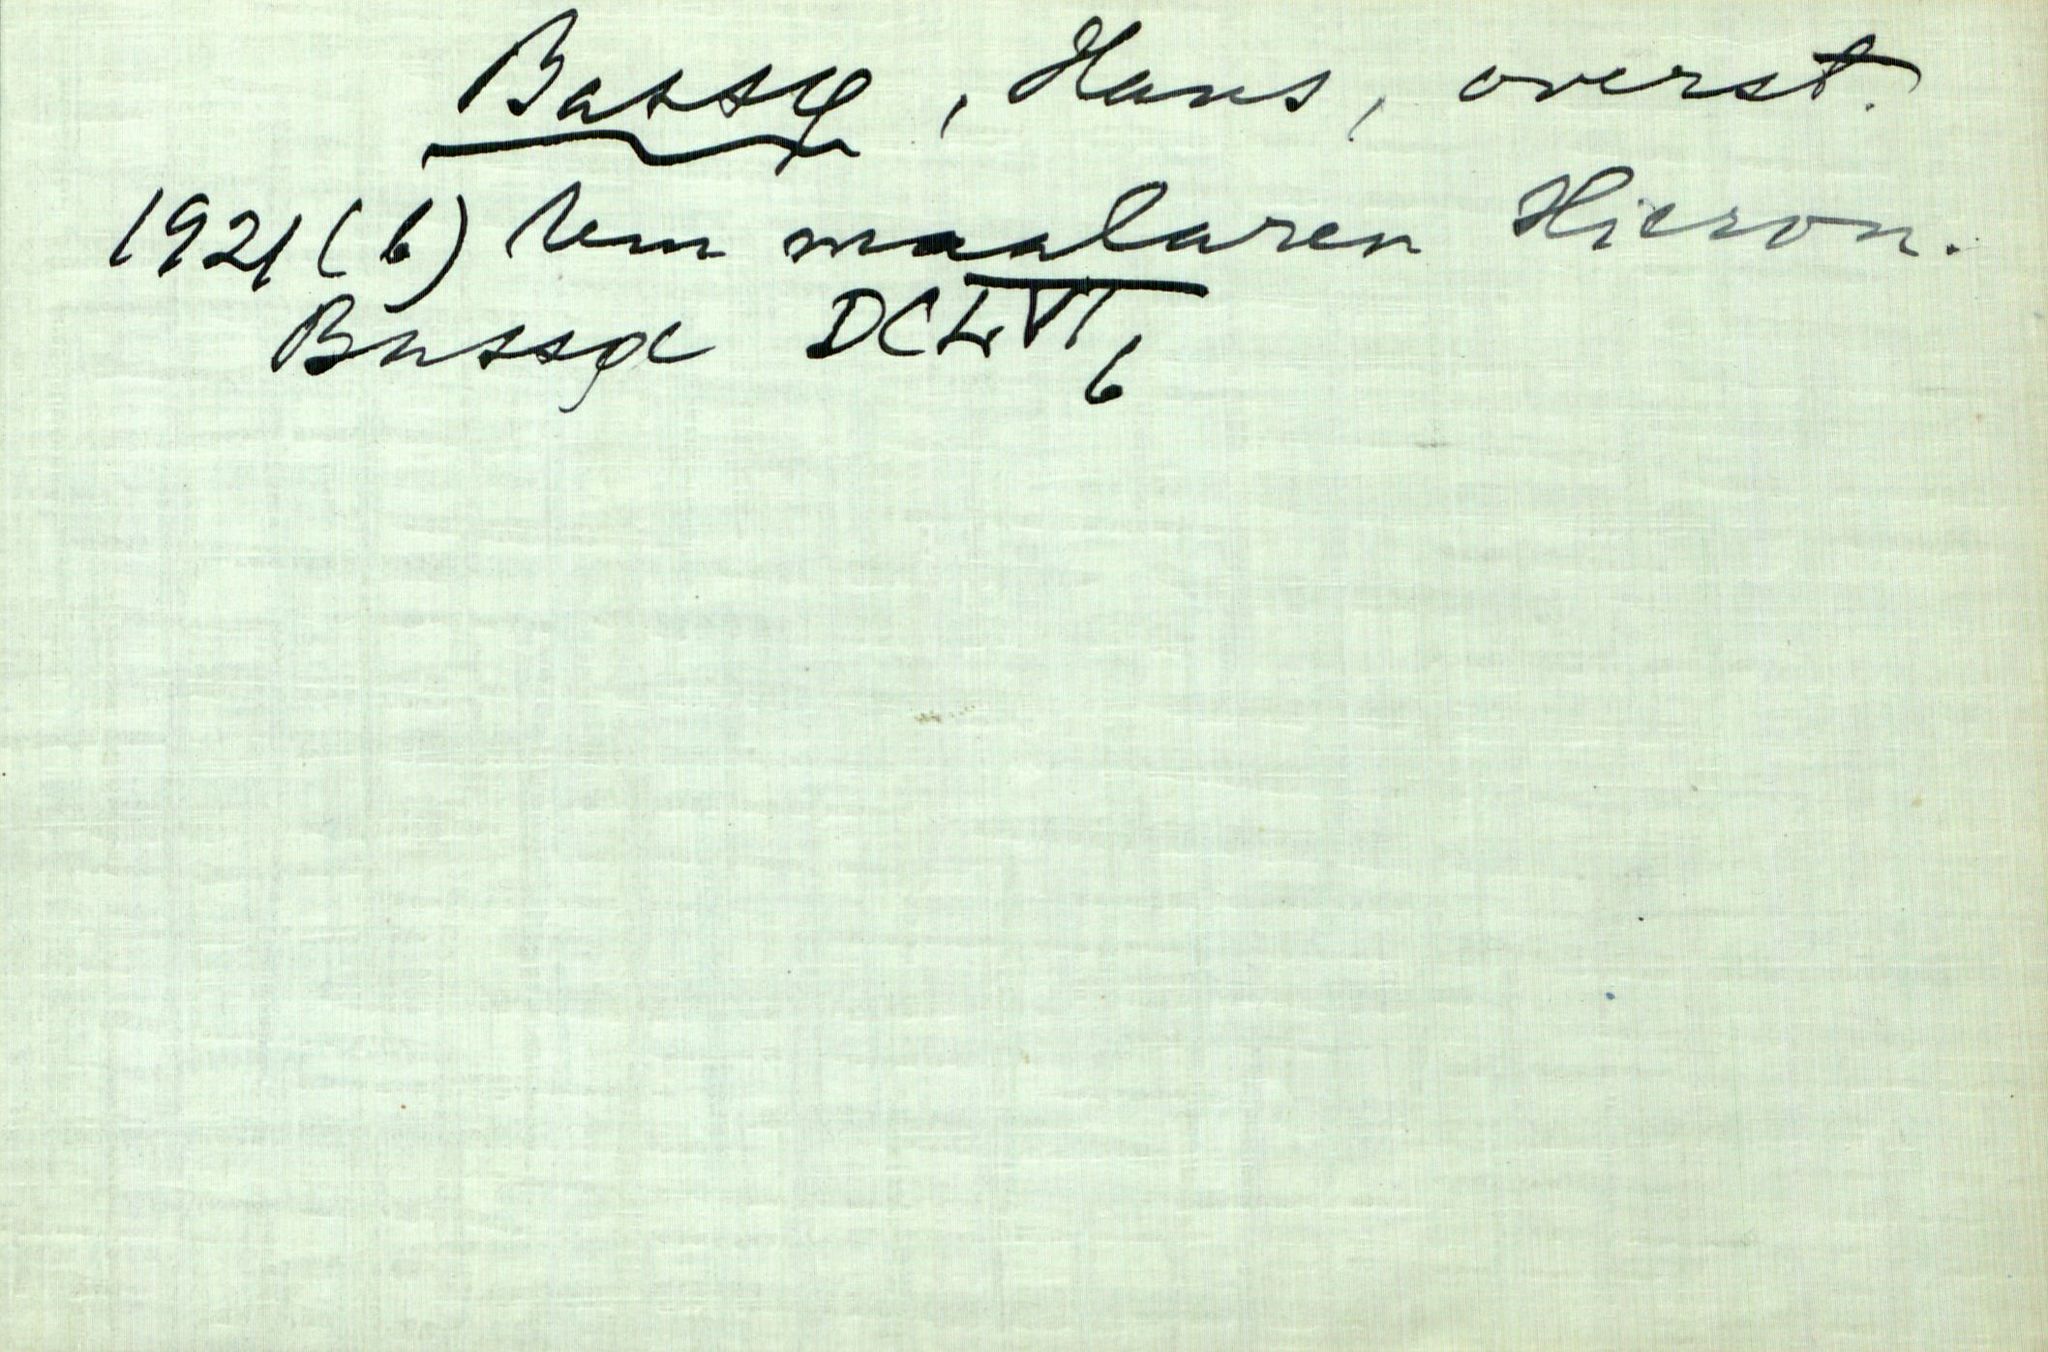 Bassø, Hans, overst.
1921 (6) Um maalaren Hieron.
Bassø DCLVI 6